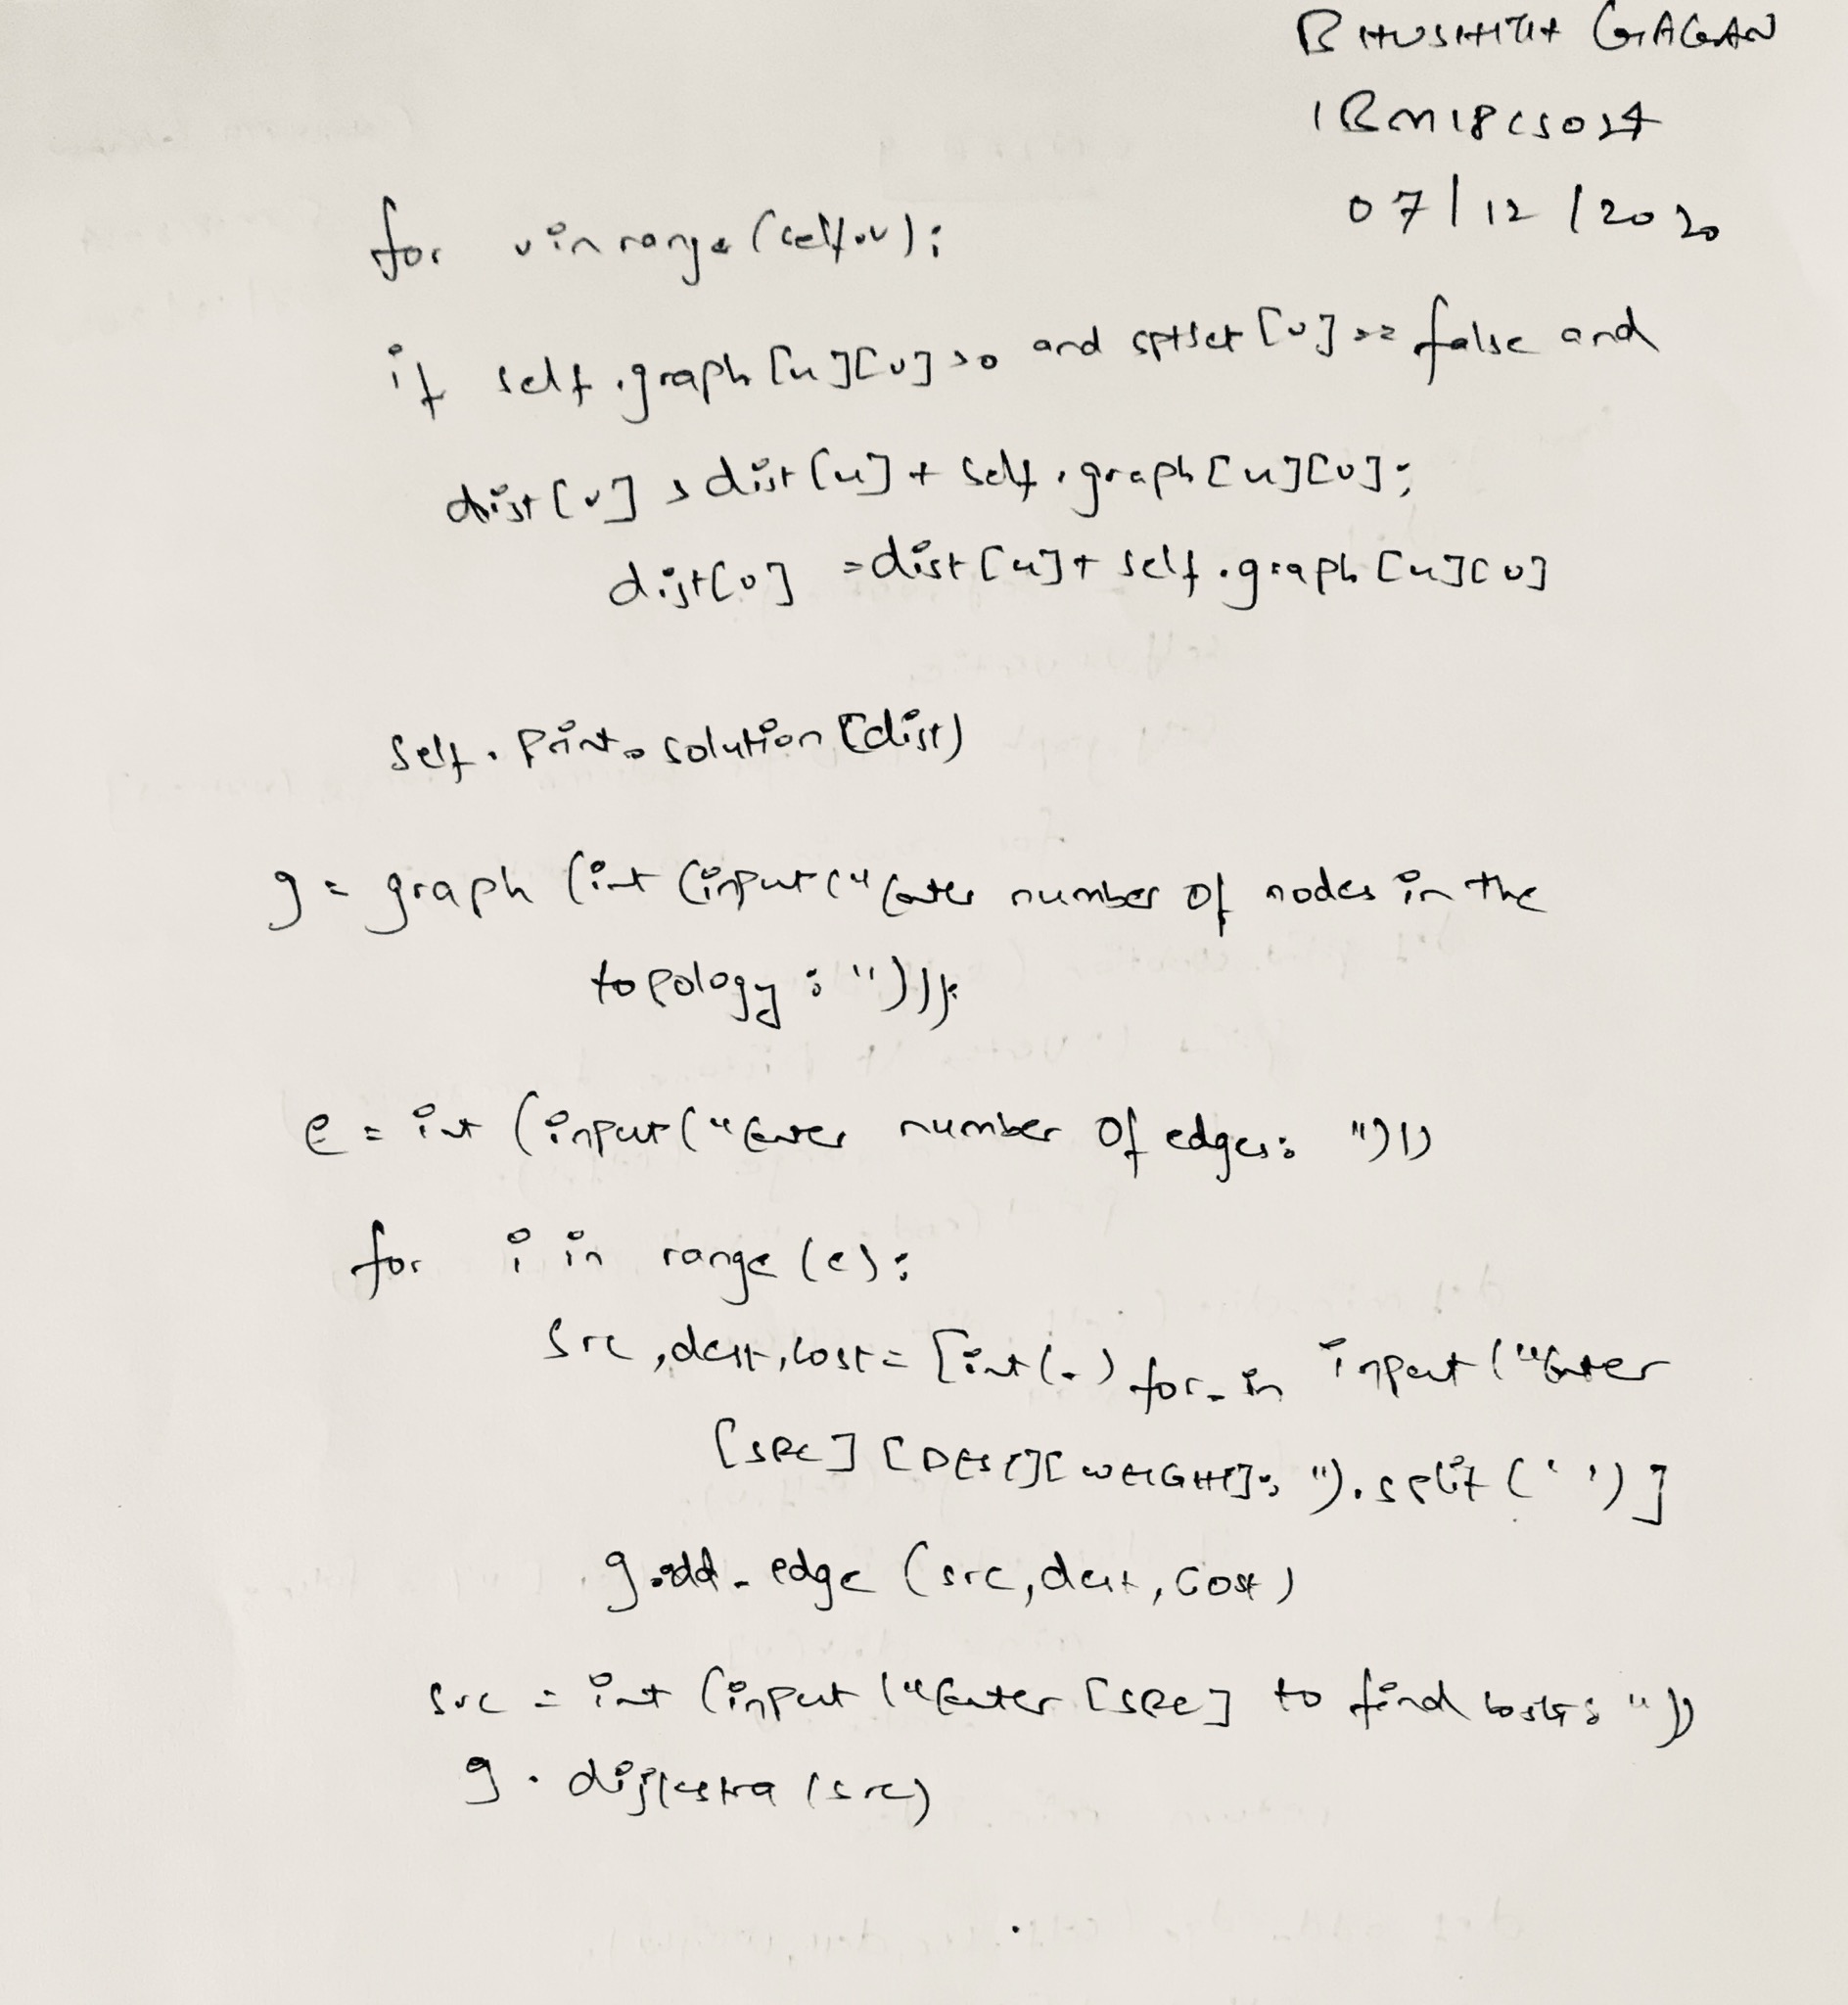 BHUSHITH GAGAN
1BM18CS027
07/12/2020
for v in range(self.v):
if self.graph[u][v]>0 and sptset[v]== false and
dist[v] > dist[u] + self.graph[u][v]:
dist[v] = dist[u] + self.graph[u][v]
self.print_solution(dist)
g = graph (int (input("Enter number of nodes in the
topology : ")))
e = int (input("Enter number of edges: "))
for i in range (e):
src, dest, cost = [int(_) for _ in input("Enter
[SRC] [DEST][WEIGHT]: ").split(' ')]
g.add_edge (src, dest, cost)
src = int (input ("Enter [SRC] to find costs: "))
g.dijkstra (src)